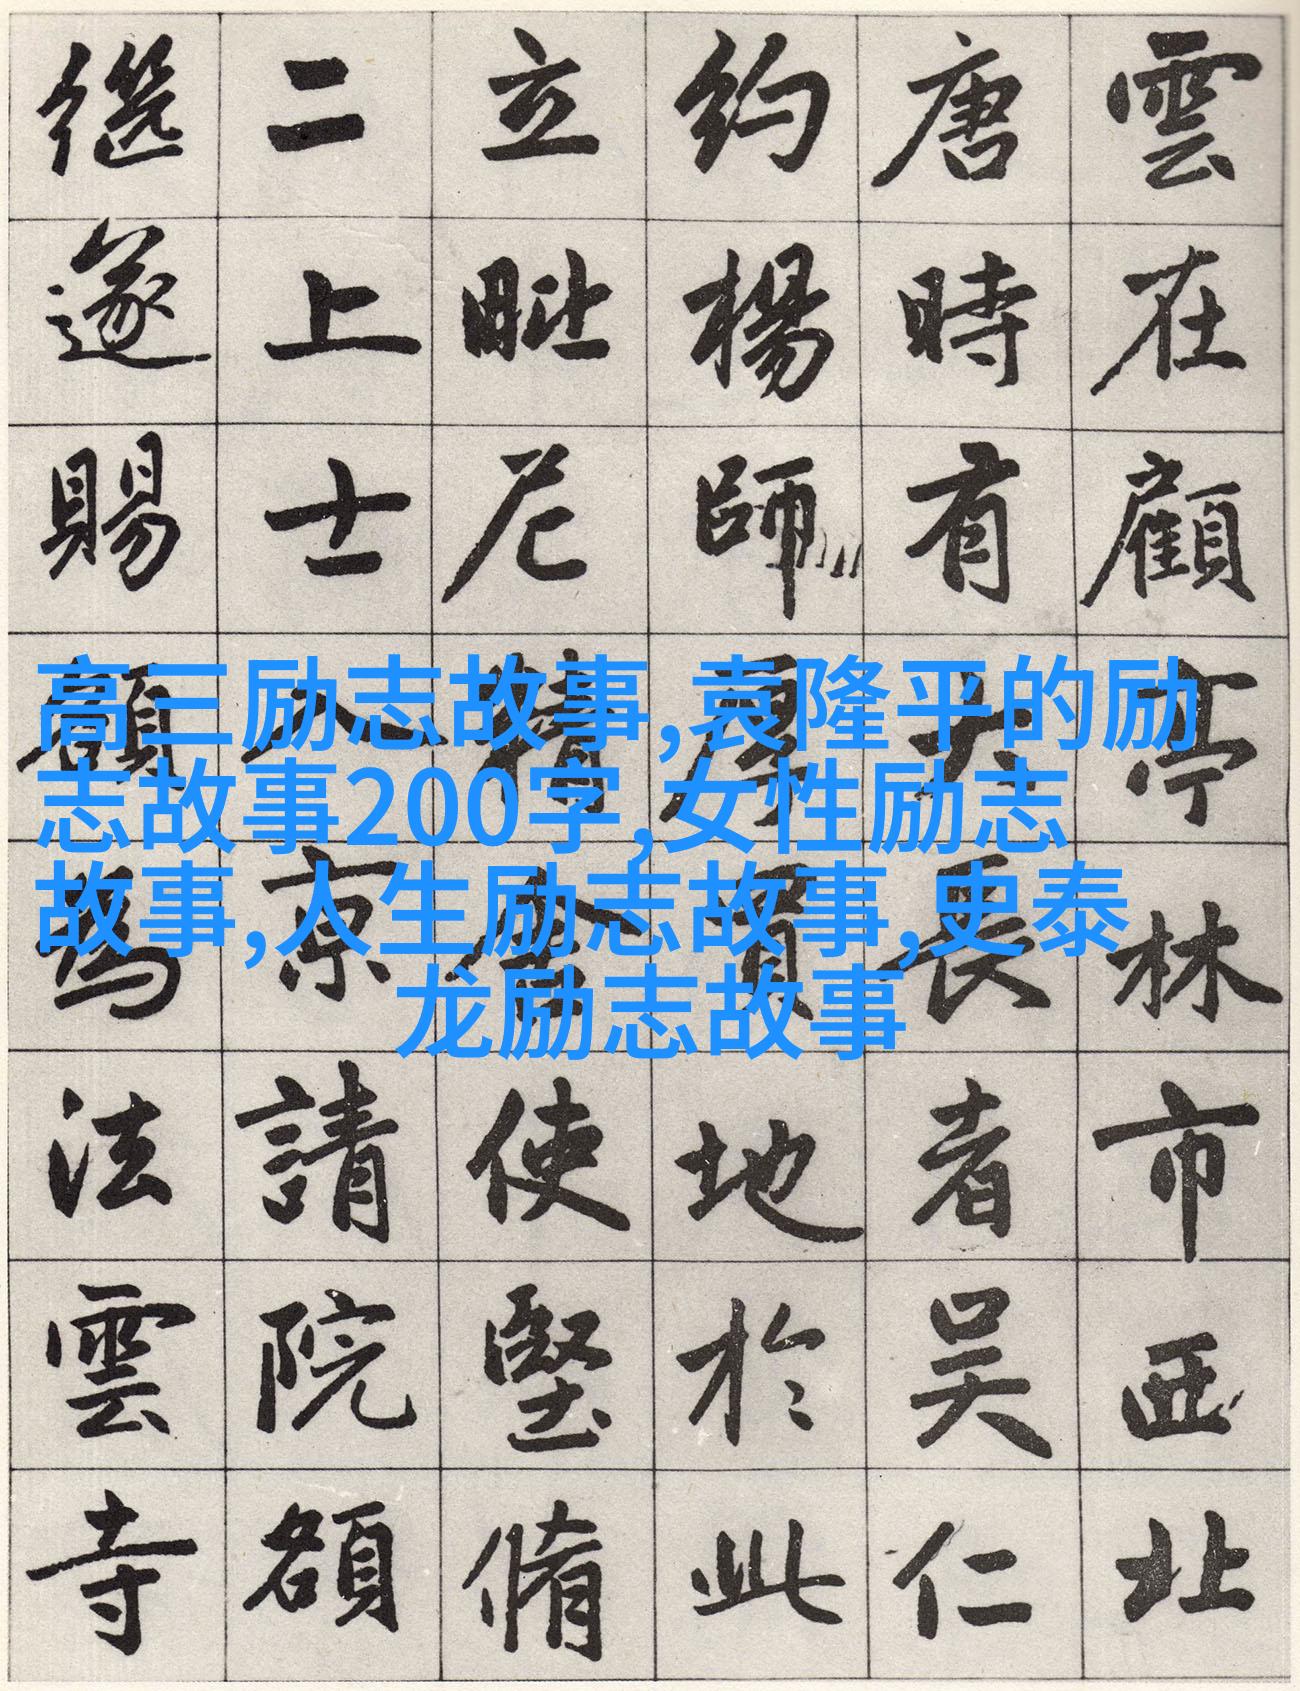 高三励志故事,袁隆平的励
志故事200字,女性励志
故事,人生励志故事,史泰
龙励志故事
雲在顧亭林市西北
唐時有大長者吴仁
約楊師厚買地於此
立毗尼精舍使堅脩
二上士入京請院額
遂賜額為法雲寺